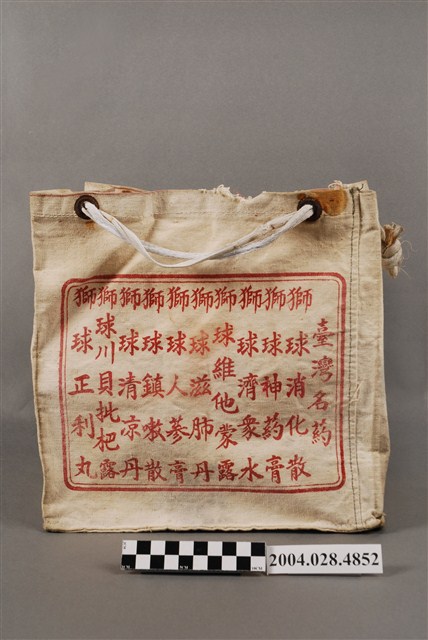 臺灣名药
獅球消化散
獅球神药膏
獅球濟衆水
獅球維他蒙露
獅球滋肺丹
獅球人蔘膏
獅球鎮嗽散
獅球清凉丹
獅球川貝批杷露
獅球正利丸
2004.028.4852